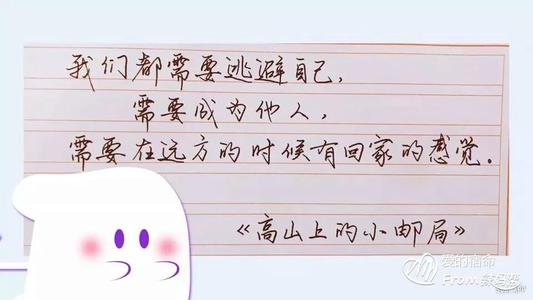 我们都需要逃避自己，
需要成为他人，
需要在远方的时候有回家的感觉。
《高山上的小邮局》
爱的宿命
From